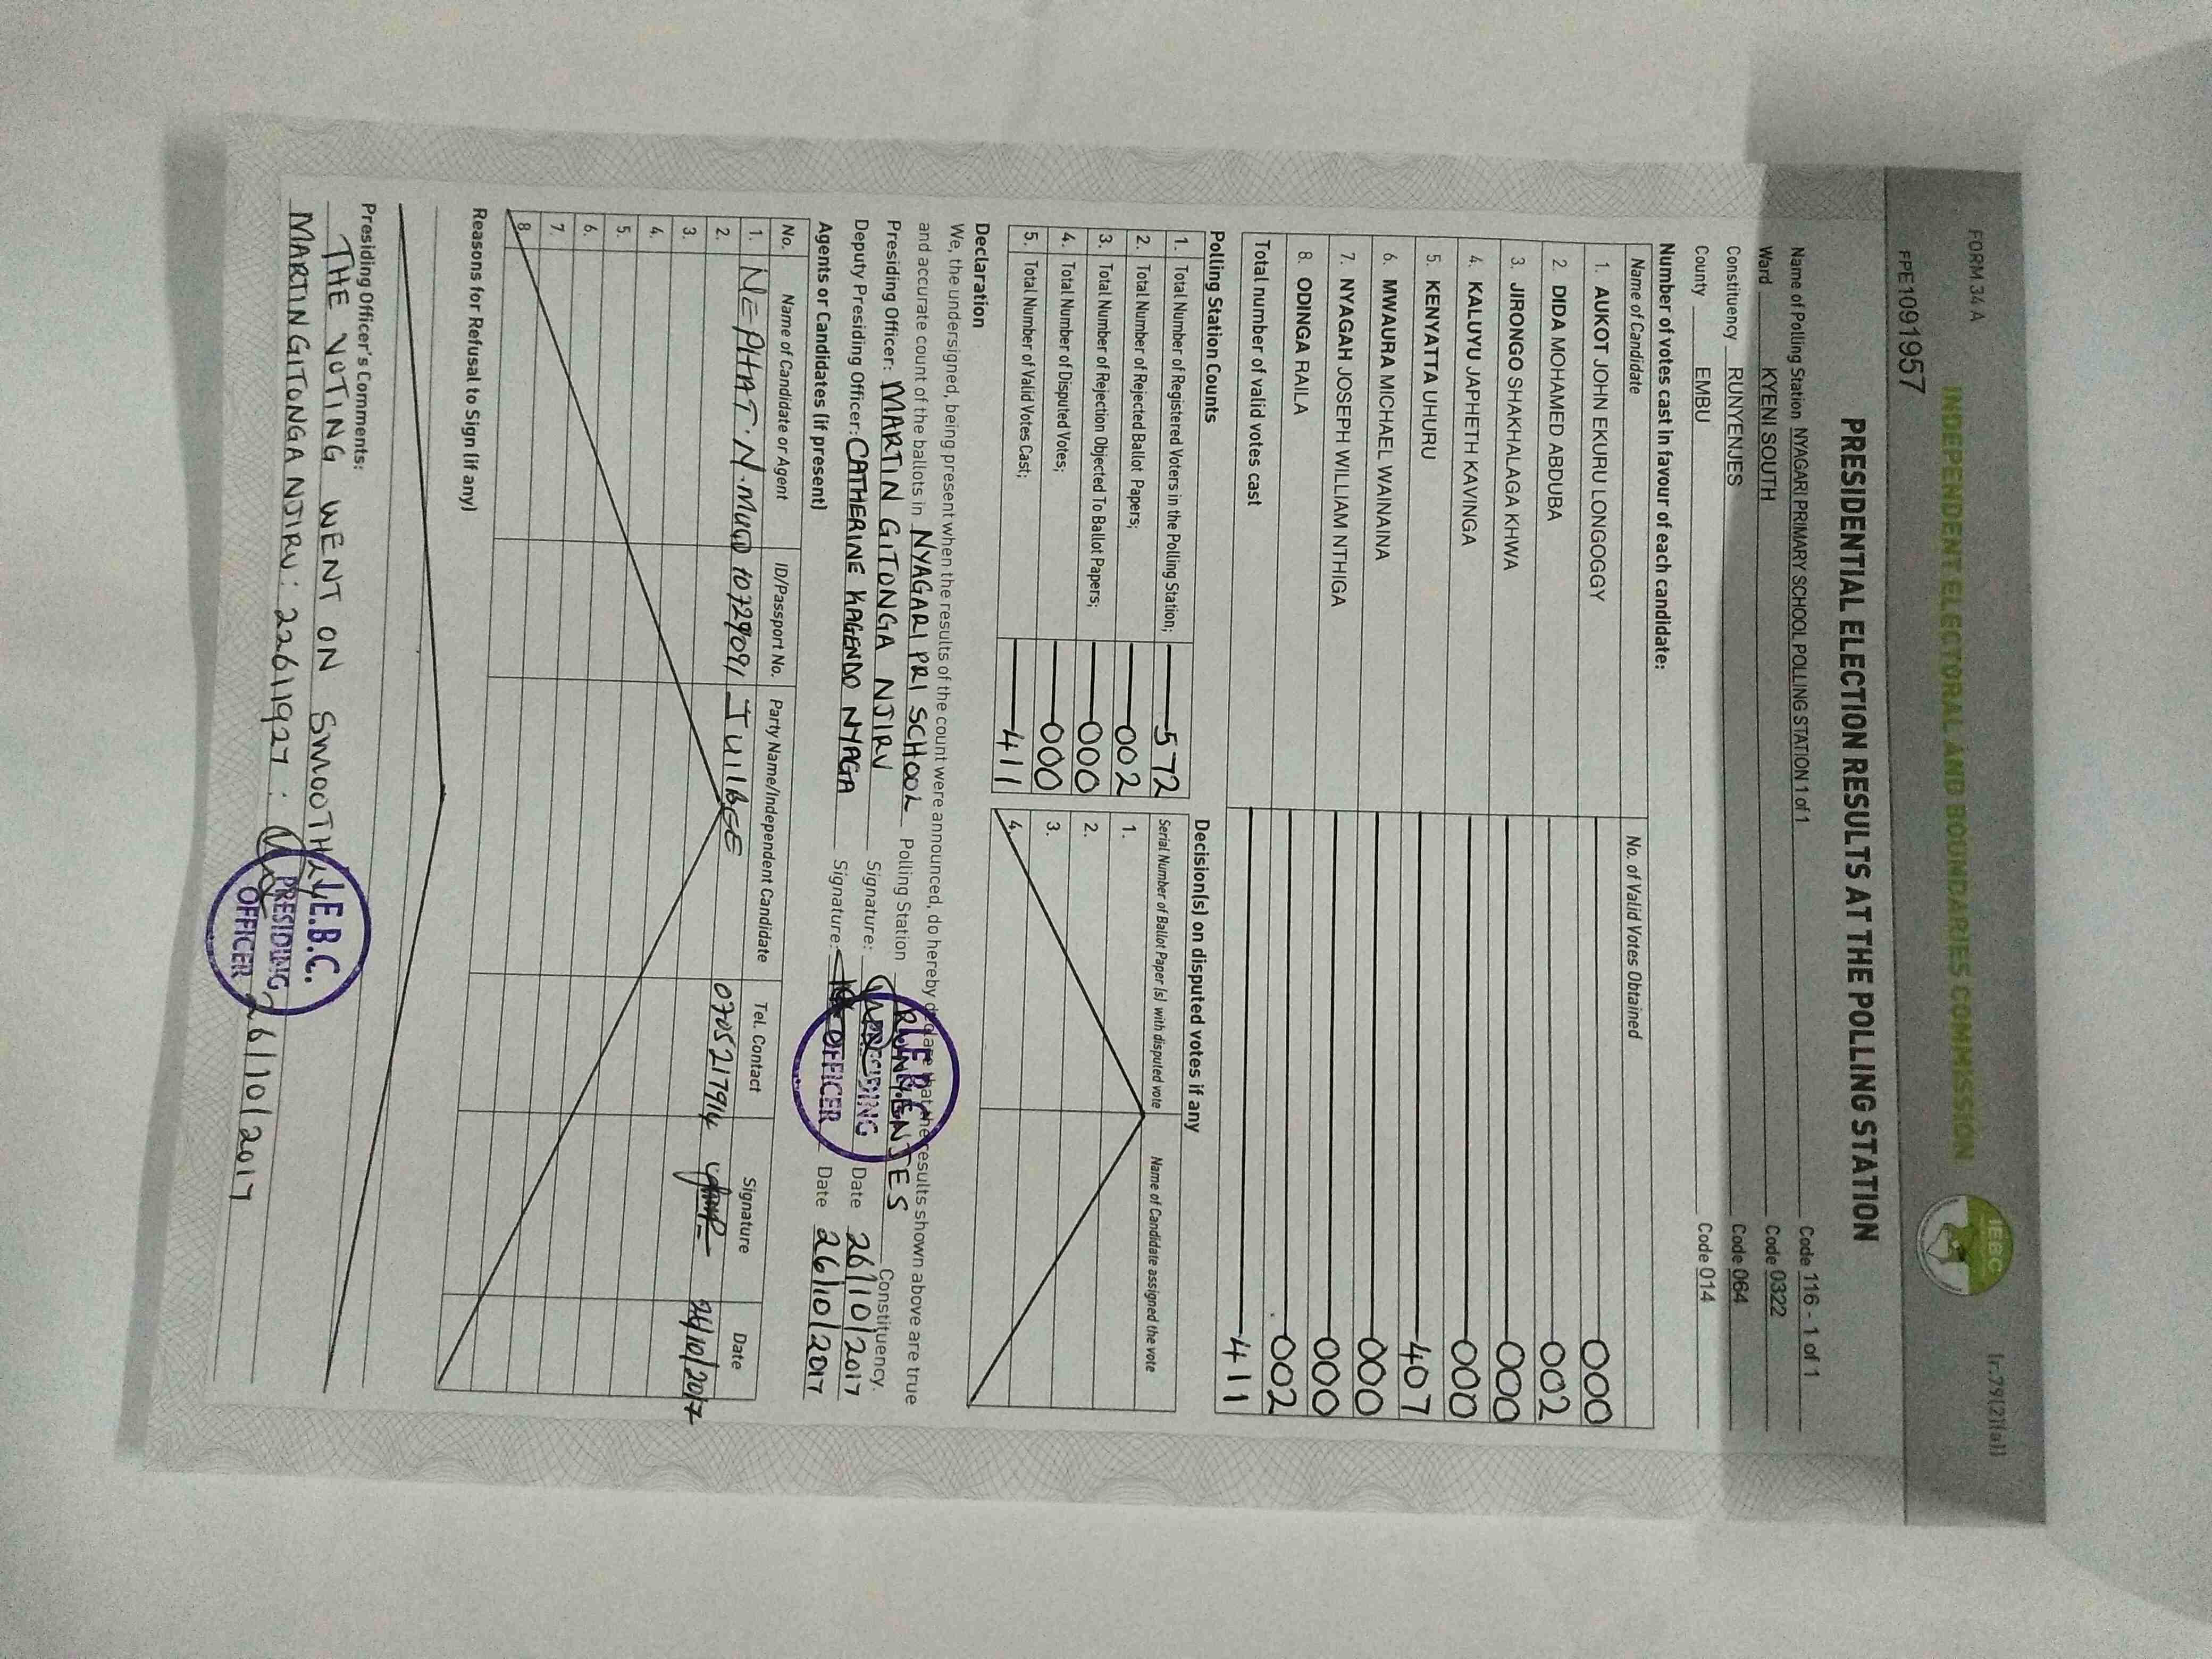 FORM 34 A
[r.79(2)(a)]
INDEPENDENT ELECTORAL AND BOUNDARIES COMMISSION
IEBC
FPE1091957
PRESIDENTIAL ELECTION RESULTS AT THE POLLING STATION
Name of Polling Station NYAGARI PRIMARY SCHOOL POLLING STATION 1 of 1 Code 116 - 1 of 1
Ward KYENI SOUTH Code 0322
Constituency RUNYENJES Code 064
County EMBU Code 014
Number of votes cast in favour of each candidate:
Name of Candidate No. of Valid Votes Obtained
1. AUKOT JOHN EKURU LONGOGGY 000
2. DIDA MOHAMED ABDUBA 002
3. JIRONGO SHAKHALAGA KHWA 000
4. KALUYU JAPHETH KAVINGA 000
5. KENYATTA UHURU 407
6. MWAURA MICHAEL WAINAINA 000
7. NYAGAH JOSEPH WILLIAM NTHIGA 000
8. ODINGA RAILA 002
Total number of valid votes cast 411
Polling Station Counts
1. Total Number of Registered Voters in the Polling Station; 572
2. Total Number of Rejected Ballot Papers; 002
3. Total Number of Rejection Objected To Ballot Papers; 000
4. Total Number of Disputed Votes; 000
5. Total Number of Valid Votes Cast; 411
Decision(s) on disputed votes if any
Serial Number of Ballot Paper (s) with disputed vote Name of Candidate assigned the vote
1.
2.
3.
4.
Declaration
We, the undersigned, being present when the results of the count were announced, do hereby declare that the results shown above are true
and accurate count of the ballots in NYAGARI PRI SCHOOL Polling Station RUNYENJES Constituency.
Presiding Officer: MARTIN GITONGA NJIRU Signature: Date 26/10/2017
Deputy Presiding Officer: CATHERINE KAGENDO NYAGA Signature: Date 26/10/2017
I.E.B.C.
PRESIDING
OFFICER
Agents or Candidates (if present)
No. Name of Candidate or Agent ID/Passport No. Party Name/Independent Candidate Tel. Contact Signature Date
1. NEPHAT.N. 10729091 JUILBEE 0705217914 26/10/2017
2.
3.
4.
5.
6.
7.
8.
Reasons for Refusal to Sign (if any)
Presiding Officer's Comments:
THE VOTING WENT ON SMOOTHLY
MARTIN GITONGA NJIRU: 22611927: 26/10/2017
I.E.B.C.
PRESIDING
OFFICER